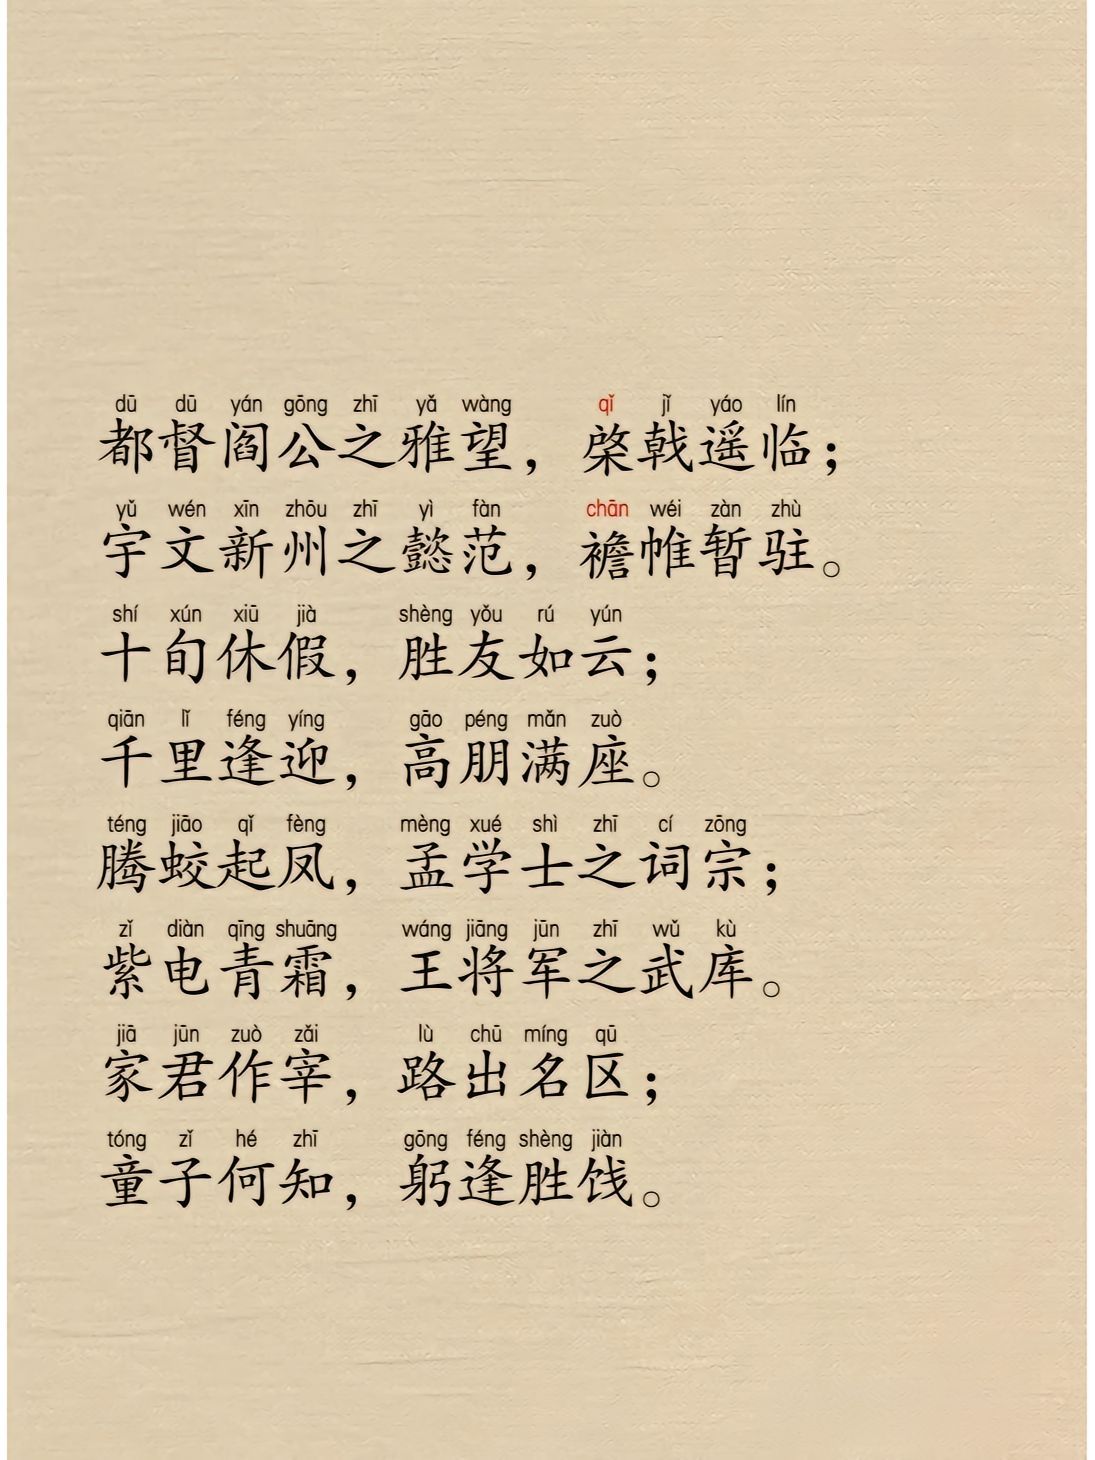 dū dū yán gōng zhī yǎ wàng qǐ jǐ yáo lín
都督阎公之雅望，棨戟遥临；
yǔ wén xīn zhōu zhī yì fàn chān wéi zàn zhù
宇文新州之懿范，襜帷暂驻。
shí xún xiū jià shèng yǒu rú yún
十旬休假，胜友如云；
qiān lǐ féng yíng gāo péng mǎn zuò
千里逢迎，高朋满座。
téng jiāo qǐ fèng mèng xué shì zhī cí zōng
腾蛟起凤，孟学士之词宗；
zǐ diàn qīng shuāng wáng jiāng jūn zhī wǔ kù
紫电青霜，王将军之武库。
jiā jūn zuò zǎi lù chū míng qū
家君作宰，路出名区；
tóng zǐ hé zhī gōng féng shèng jiàn
童子何知，躬逢胜饯。